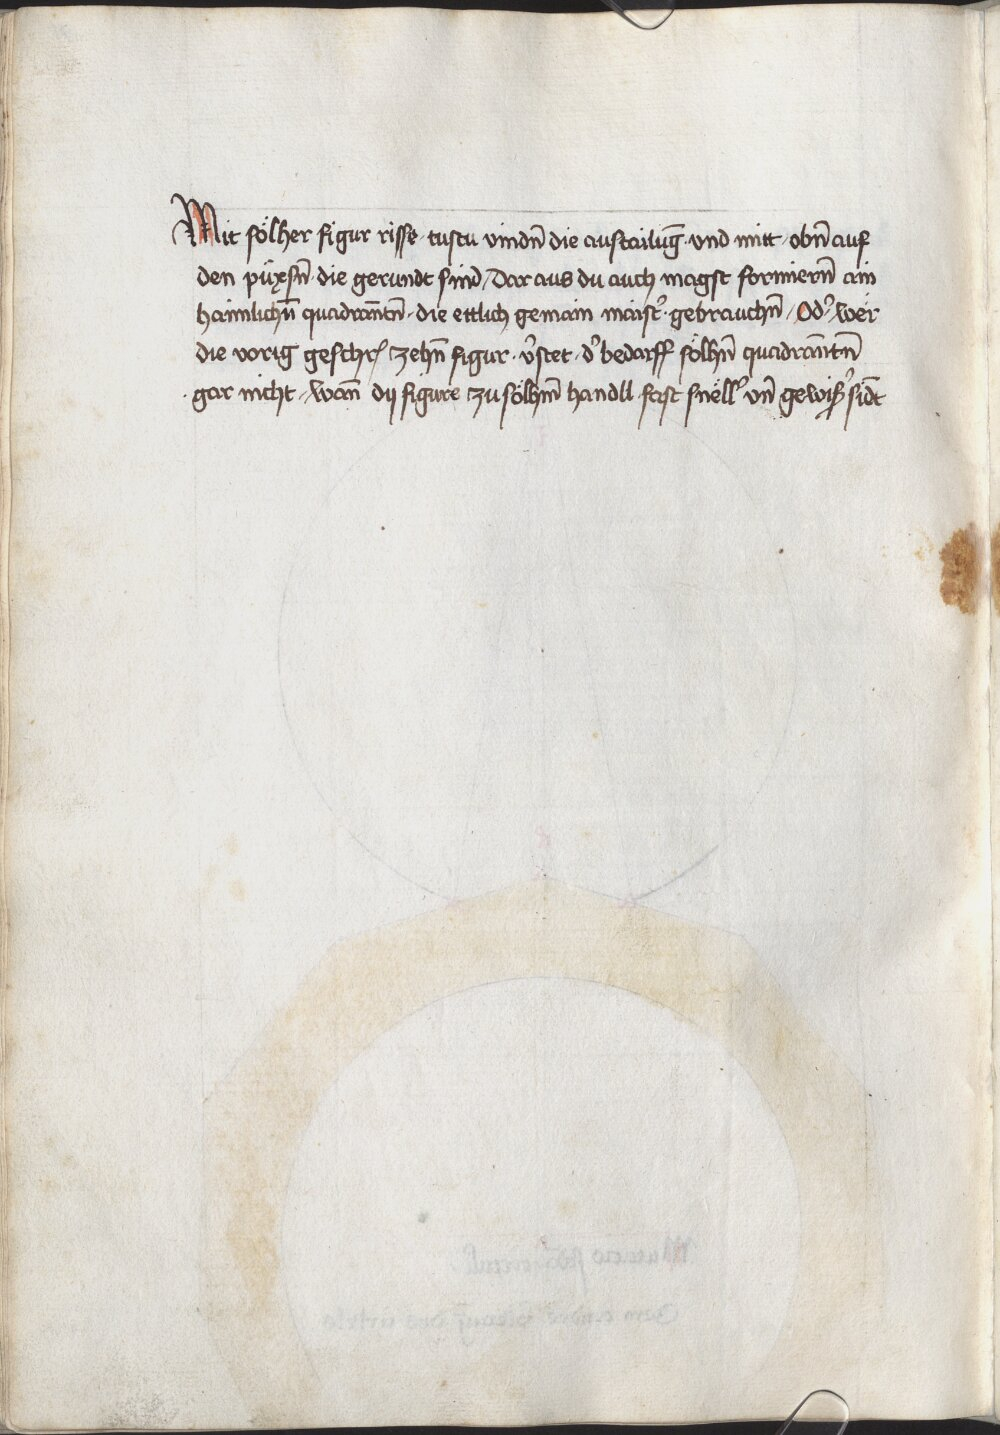 Mit sölher figur risse · tustu vindn̄ die austailūg · vnd mitt · obn̄ auf
den püxsn̄ · die gerundt sind / Dar aus du auch magst formiern̄ ain
haimlichn̄ quadrānntn̄ · die ettlich gemain maistꝰ · gebrauchn̄ / Odꝰ wer
die vorig geschrꝭ zehn̄ figur · vꝰstet · dꝰ bedarff sölhn̄ quadrānntn̄
gar nicht · wān̄ dÿ figure zu sölhm̄ handll fast snellꝰ vn̄ gewißꝰ sidt